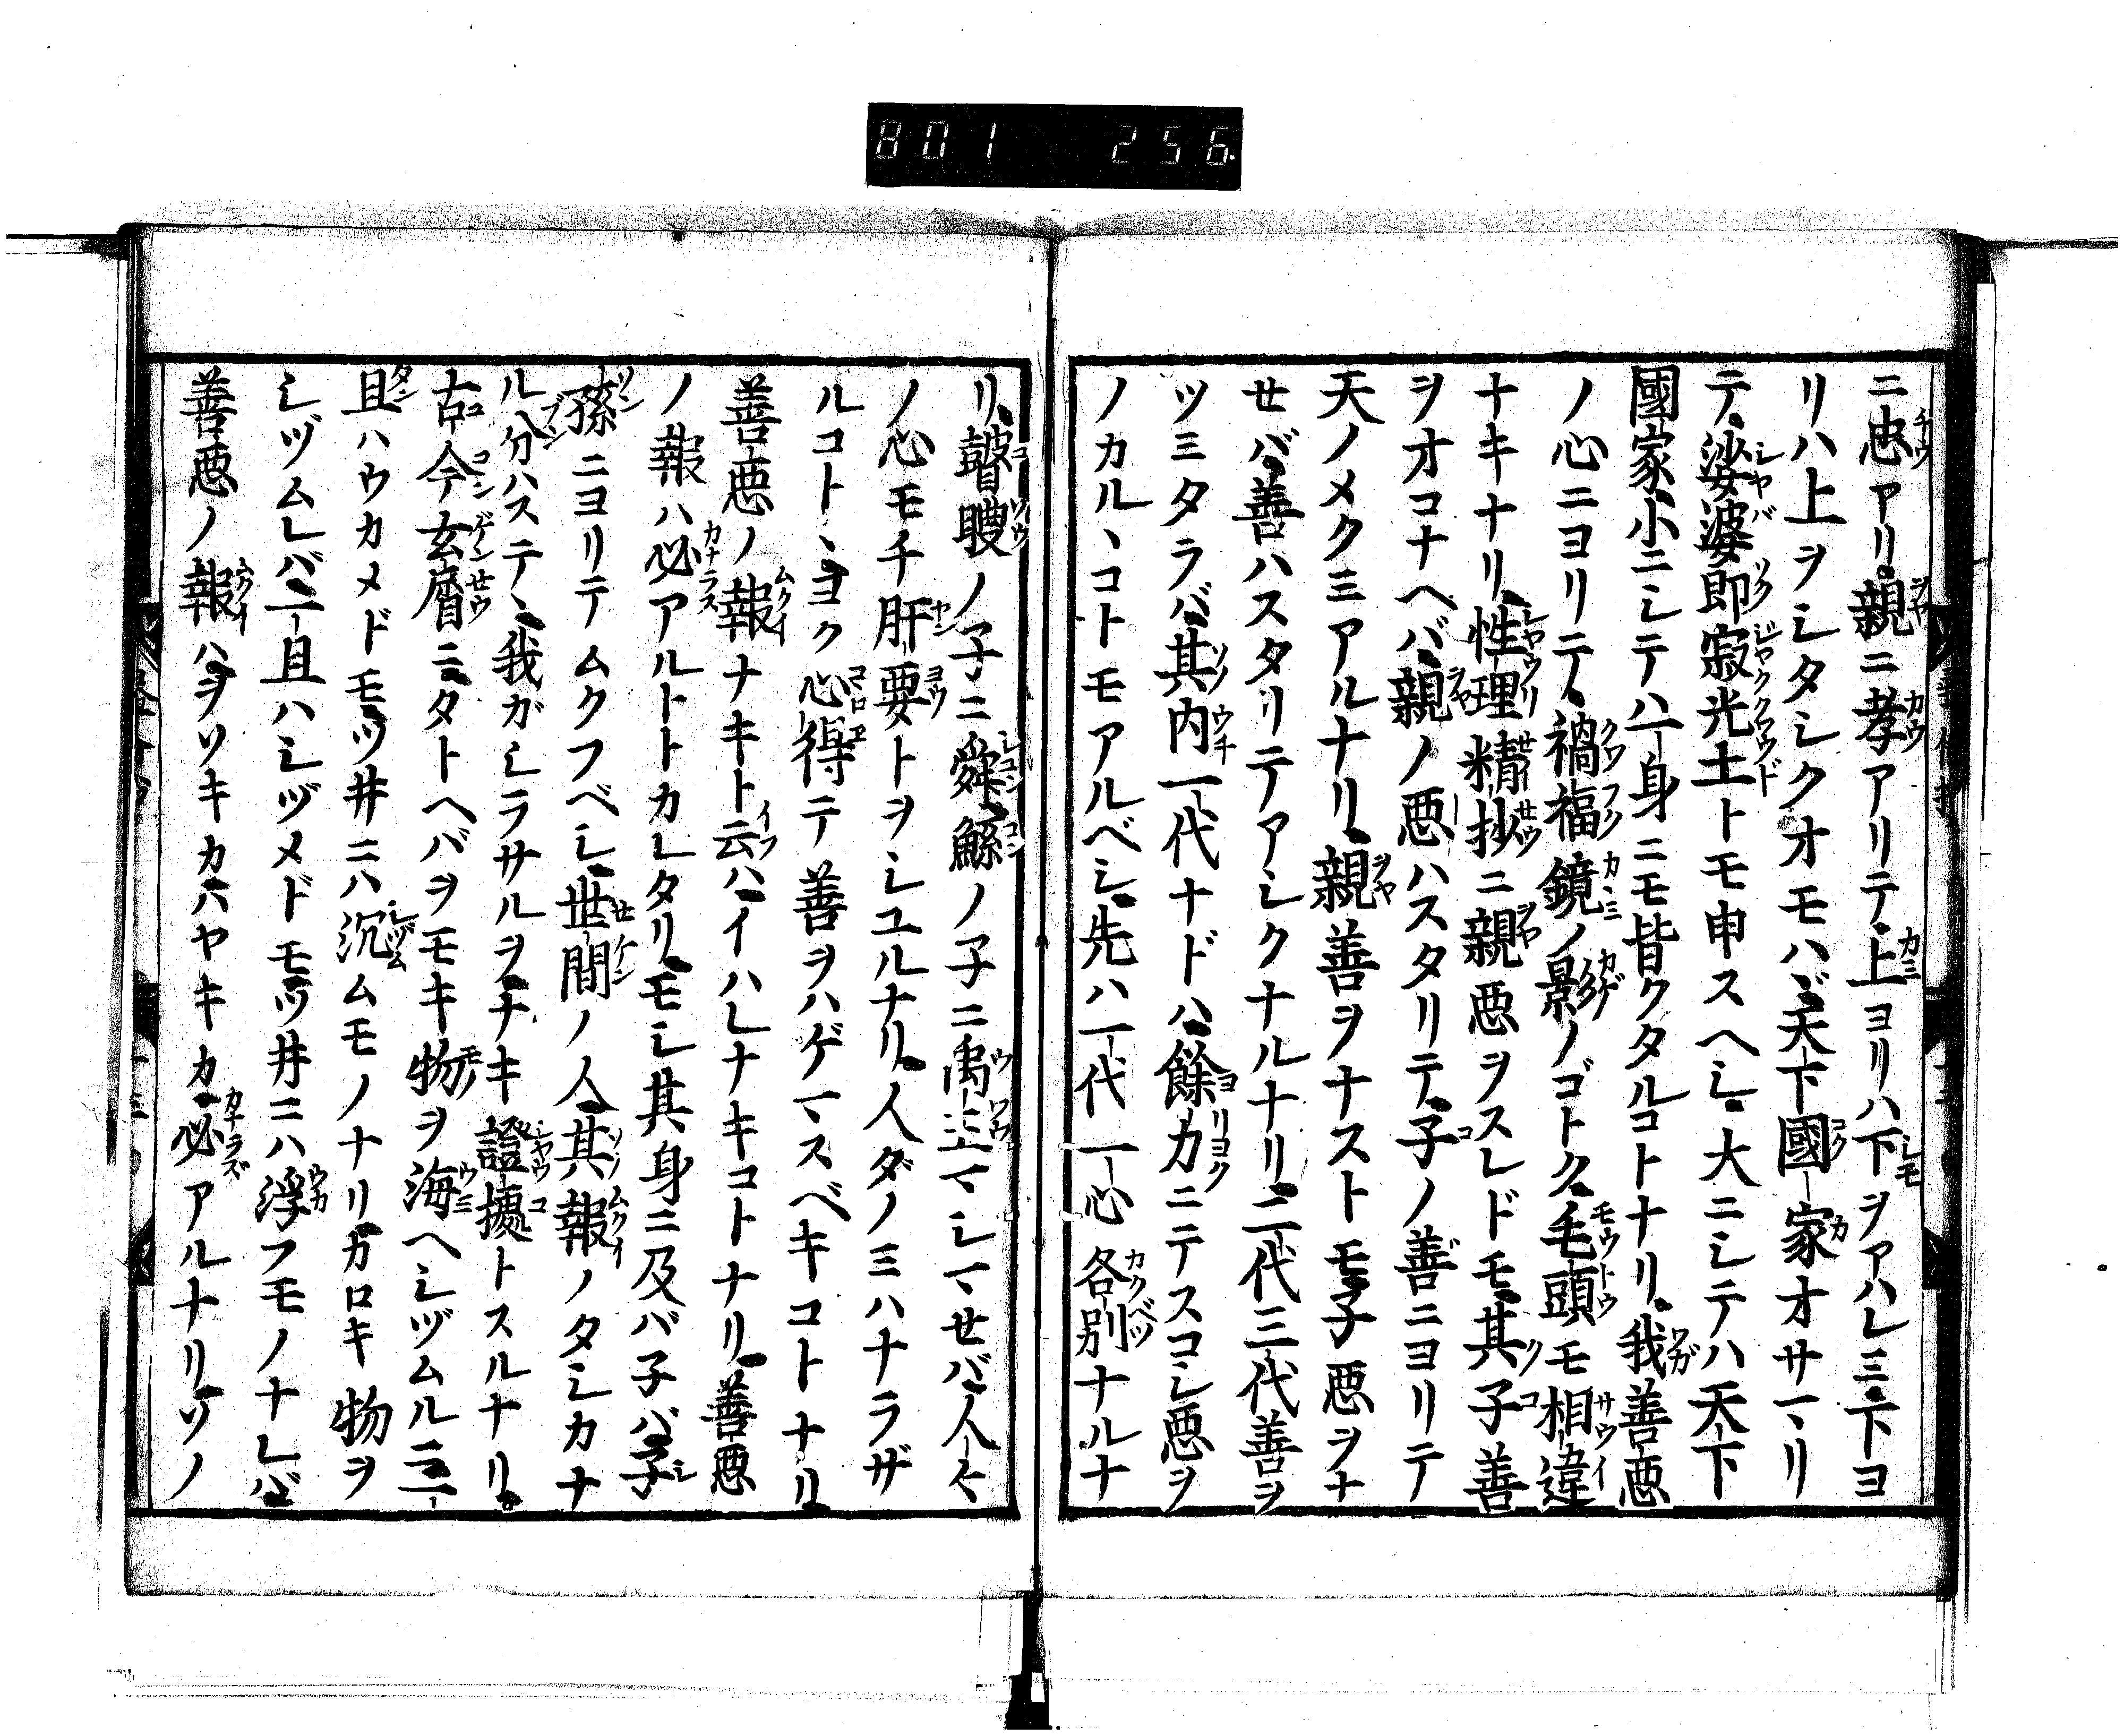 801 256
ニ忠アリ。親ニ孝アリテ、上ヨリハ下ヲアハレミ、下ヨ
リハ上ヲシタシクオモハヾ、天下國家オサマヽリ
テ、娑婆即寂光土トモ申スヘシ。大ニシテハ天下
國家、小ニシテハ一身ニモ皆クタルコトナリ。我善悪
ノ心ニヨリテ、禍福鏡ノ影ノゴトク、毛頭モ相違
ナキナリ。性理精抄ニ親悪ヲスレドモ、其子善
ヲオコナヘバ、親ノ悪ハスタリテ、子ノ善ニヨリテ
天ノメクミアルナリ。親善ヲナストモ、子悪ヲナ
セバ、善ハスタリテアシクナルナリ。二代三代善ヲ
ツミタラバ、其内一代ナドハ、餘力ニテスコシ悪ヲ
ノカルヽコトモアルベシ。先ハ一代一心各別ナルナ
リ、瞽瞍ノ子ニ舜、鯀ノ子ニ禹王マシマセバ、人々
ノ心モチ肝要トヲシユルナリ。人ダノミハナラザ
ルコトヽ、ヨク心得テ善ヲハゲマスベキコトナリ
善悪ノ報ナキト云ハ、イハレナキコトナリ。善悪
ノ報ハ必アルトトカレタリ。モシ其身ニ及バ子バ、子
孫ニヨリテムクフベシ。世間ノ人、其報ノタシカナ
ル分ハステヽ、我ガシラサルヲ、ナキ證據トスルナリ。
古今玄屑ニ、タトヘバヲモキ物ヲ海ヘシヅムルニ、一
旦ハウカメドモ、ツ井ニハ沉ムモノナリ。カロキ物ヲ
シヅムレバ、一旦ハシヅメドモ、ツ井ニハ浮フモノナレバ、
善悪ノ報ハ、ヲソキカハヤキカ、必アルナリ。ソノ